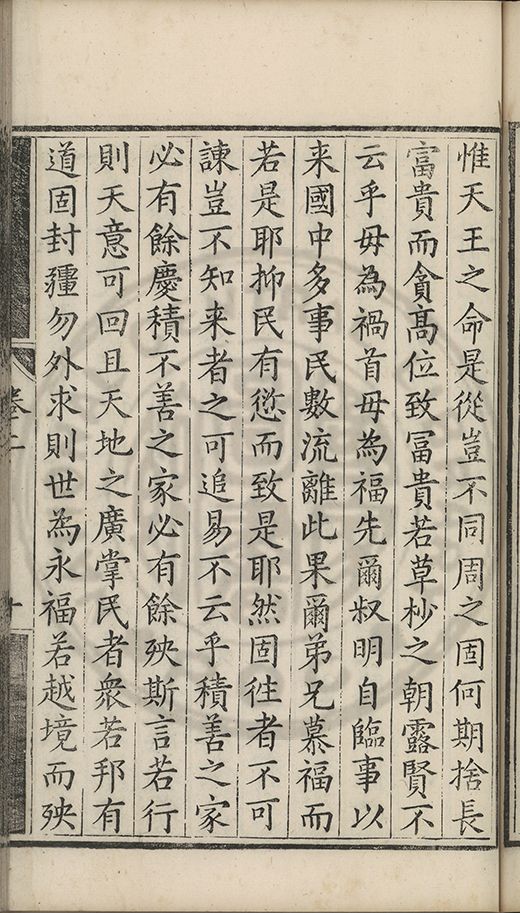 惟天王之命是從豈不同周之固何期捨長
冨貴而貪髙位致冨貴若草杪之朝露賢不
云乎毋為禍首毋為福先爾叔明自臨事以
来國中多事民數流離此果爾弟兄慕福而
若是耶抑民有愆而致是耶然固徃者不可
諫豈不知来者之可追易不云乎積善之家
必有餘慶積不善之家必有餘殃斯言若行
則天意可回且天地之廣掌民者衆若邦有
道固封疆勿外求則世為永福若越境而殃
卷二
十